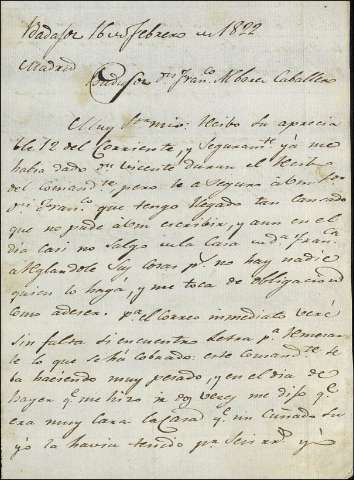 Badajoz 16 de Febrero de 1822
Madrid
Señor Dn Franco Albarez Caballero
Muy Sr mio: Recibo su aprecia
ble 12 del Corriente, y Seguramte ya me
habia dado Dn Vicente Duran el Recibo
del Comandte, pero le aseguro a Vm Sor
Dn Franco que tengo llegado tan cansado
que no pude a Vm escribir, y aun en el
dia casi no Salgo de la Casa de Da Franca
areglandole Sus Cosas pr no hay nadie
quien lo haga, y me toca de obligacion
como a deser. pa el Correo inmediato veré
Sin falta si encuentro Letra pa
le lo que se ha cobrado: este Comandte se
ba haciendo muy pesado, y en el dia de
hayer qe me hizo ir dos vezes me dijo qe
era muy Cara la Casa qe un Cuñado Su
yo la havia tenido pr Seis rrs ya